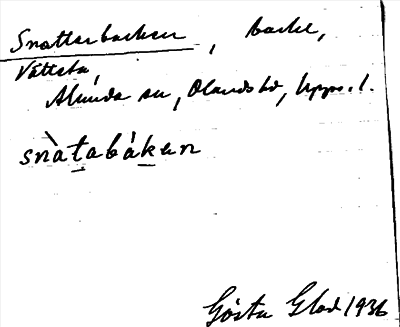 Snatterbacken, backe,
Vättsta,
Alunda sn, Olands hd, Upps. l.
snàtabáken
Gösta Glad 1936